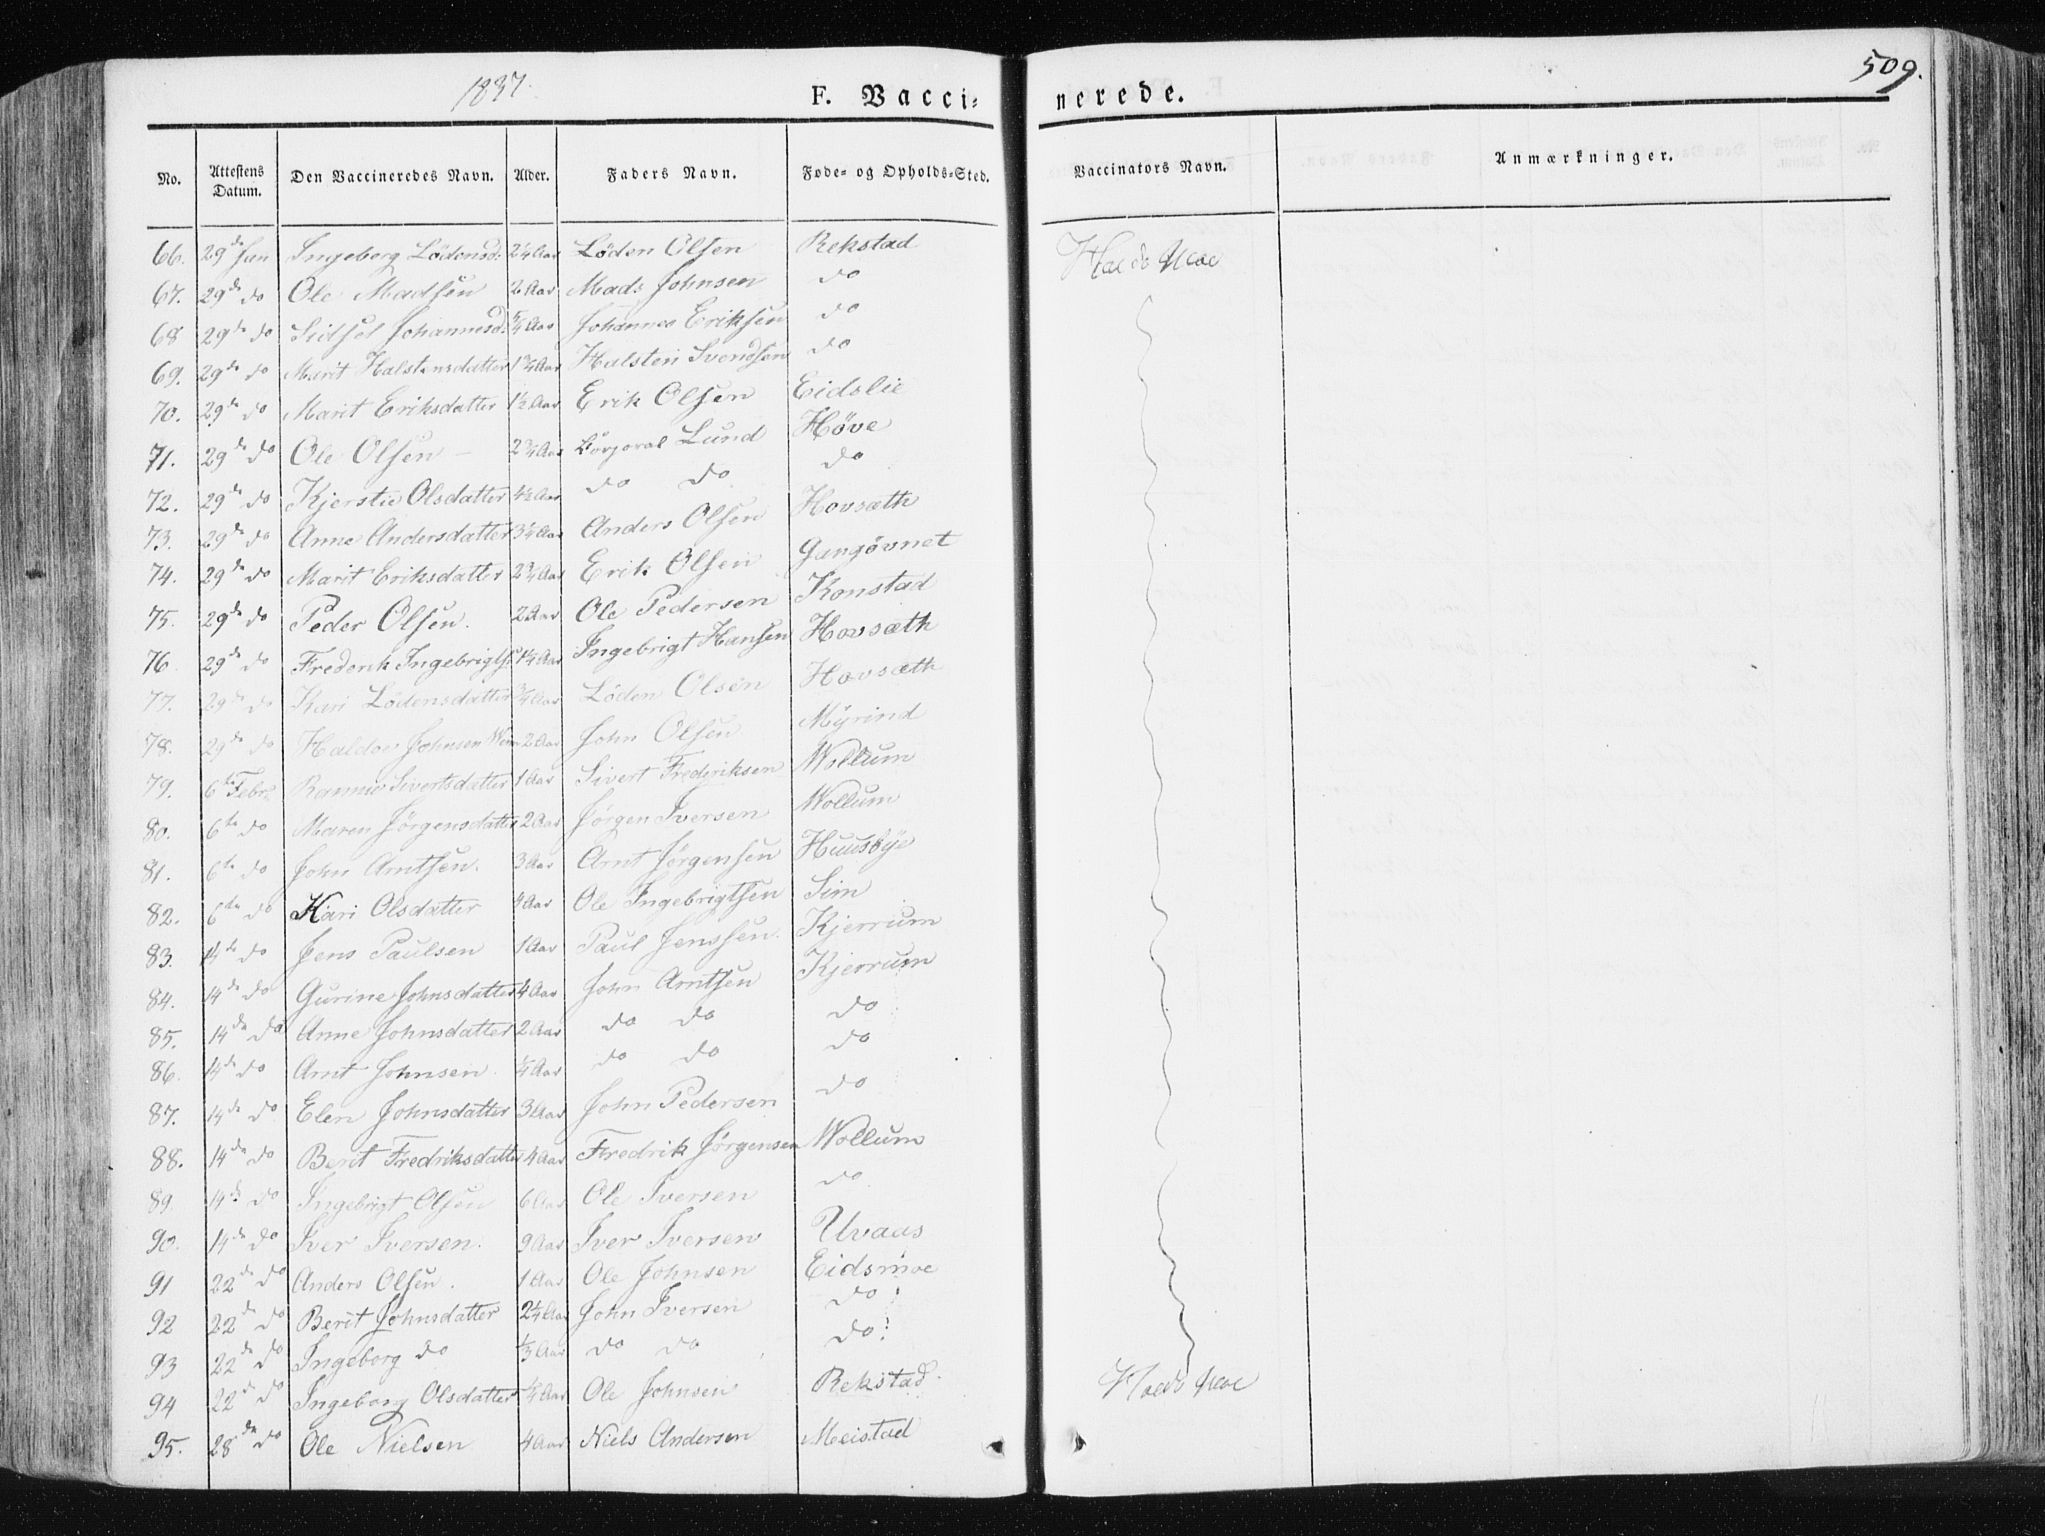 1837.
F. Vacci- nerede.
509.
No. Attestens Datum. Den Vaccineredes Navn. Alder. Faders Navn. Føde- og Opholds-Sted. Vaccinators Navn. Anmærkninger.
66. 29de Jan Ingeborg Lødensd: 2¼ Aar Løden Olsen Rekstad
67. 29de do Ole Madsen 2 Aar Mads Johnsen do
68 29de do Sidsel Johannesd: 5/4 Aar Johannes Eriksen do
69. 29de do Marit Halstensdatter 1¾ Aar Halsten Svendsen do
70. 29de do Marit Eriksdatter 1½ Aar Erik Olsen Eidslie
71. 29de do Ole Olsen 2¾ Aar Corporal Lund Høve
72. 29de do Kjerstie Olsdatter 4½ Aar do do do
73. 29de do Anne Andersdatter 3¼ Aar Anders Olsen Hovsæth
74. 29de do Marit Eriksdatter 2¾ Aar Erik Olsen Gangøvnet
75. 29de do Peder Olsen. 2 Aar Ole Pedersen Konstad
76. 29de do Frederik Ingebrigts: 1¼ Aar Ingebrigt Hansen Hovsæth
77. 29de do Kari Lødensdatter ¾ Aar Løden Olsen Hovsæth
78. 29de do Haldor Johnsen 2 Aar John Olsen Myrind
79. 6te Febr. Rannie Sivertsdatter 1 Aar Sivert Frederiksen Wollum
80. 6te do Maren Jørgensdatter 2 Aar Jørgen Iversen Wollum
81. 6te do John Arntsen. 3 Aar Arnt Jørgensen Huusbye
82. 6te do Kari Olsdatter 4 Aar Ole Ingebrigtsen Sim
83. 14de do Jens Paulsen 1 Aar Paul Jenssen. Kjerrum
84. 14de do Gurine Johnsdatter 4 Aar John Arntsen Kjerrum
85. 14de do Anne Johnsdatter 2 Aar do do do
86. 14de do Arnt Johnsen ¼ Aar do do do
87. 14de do Elen Johnsdatter 3 Aar John Pedersen do
88. 14de do Berit Fredriksdatter 4 Aar Fredrik Jørgensen Wollum
89. 14de do Ingebrigt Olsen 6 Aar Ole Iversen do
90. 14de do Iver Iversen. 9 Aar Iver Iversen Uvaas
91 22de do Anders Olsen. 1 Aar Ole Johnsen Eidsmoe
92 22de do Berit Johnsdatter 2¼ Aar John Iversen do
93 22de do Ingeborg do ⅓ Aar do do do
94 22de do Ingeborg Olsdatter ¼ Aar Ole Johnsen Rekstad.
95. 28de do Ole Nielsen 4 Aar Niels Andersen Meistad